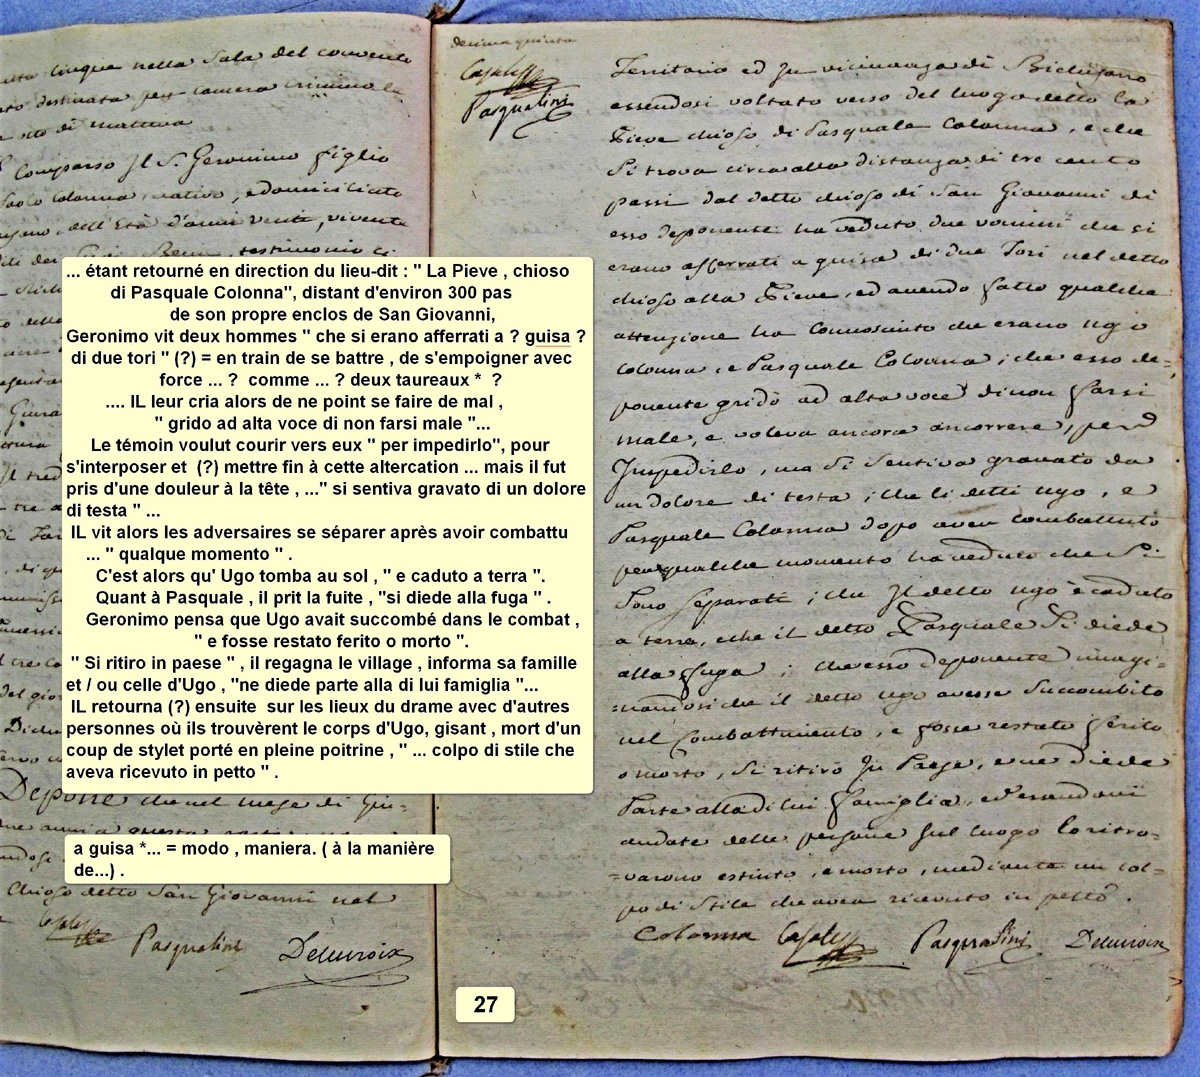 cinque nella Sala del convento
destinata per camera crimine
di mattina
Comparso Il S. Geronimo figlio
Paolo Colonna, nativo, e domiciliato
dell'Età d'anni venti, vivente
Beni, testimonio
... étant retourné en direction du lieu-dit : " La Pieve , chioso
di Pasquale Colonna", distant d'environ 300 pas
de son propre enclos de San Giovanni,
Geronimo vit deux hommes " che si erano afferrati a ? guisa ?
di due tori " (?) = en train de se battre , de s'empoigner avec
force ... ? comme ... ? deux taureaux * ?
.... IL leur cria alors de ne point se faire de mal ,
" grido ad alta voce di non farsi male "...
Le témoin voulut courir vers eux " per impedirlo", pour
s'interposer et (?) mettre fin à cette altercation ... mais il fut
pris d'une douleur à la tête , ..." si sentiva gravato di un dolore
di testa " ...
IL vit alors les adversaires se séparer après avoir combattu
... " qualque momento " .
C'est alors qu' Ugo tomba au sol , " e caduto a terra ".
Quant à Pasquale , il prit la fuite , "si diede alla fuga " .
Geronimo pensa que Ugo avait succombé dans le combat ,
" e fosse restato ferito o morto ".
" Si ritiro in paese " , il regagna le village , informa sa famille
et / ou celle d'Ugo , "ne diede parte alla di lui famiglia "...
IL retourna (?) ensuite sur les lieux du drame avec d'autres
personnes où ils trouvèrent le corps d'Ugo, gisant , mort d'un
coup de stylet porté en pleine poitrine , " ... colpo di stile che
aveva ricevuto in petto " .
Depone che nel mese di Giu-
a guisa *... = modo , maniera. ( à la manière
de...) .
Chioso detto San Giovanni nel
Casalta Pasqualini Delacroix
decima quinta
Casalta
Pasqualini
Territorio ed in vicinanza di Bichisano
essendosi voltato verso del luogo detto la
Pieve chioso di Pasquale Colonna, e che
Si trova circa alla distanza di tre cento
passi dal detto chioso di San Giovanni di
esso deponente ha veduto due uomini che si
erano afferrati a guisa di due Tori nel detto
chioso alla Pieve, ed avendo fatto qualche
attenzione ha Connosciuto che erano Ugo
Colonna, e Pasquale Colonna; che esso de-
ponente gridò ad alta voce di non farsi
male, e voleva ancora accorrere, per
Impedirlo, ma Si Sentiva gravato da
un dolore di testa; che li detti Ugo, e
Pasquale Colonna dopo aver combattuto
per qualche momento ha veduto che Si
Sono Separati; che Il detto Ugo è caduto
a terra, e che il detto Pasquale Si diede
alla fuga; che esso deponente imagi-
nandosi che il detto Ugo avesse Succombito
nel Combattimento, e fosse restato ferito
o morto, Si ritirò In Paese, e ne diede
Parte alla di lui famiglia, ed essendovi
andate delle persone Sul luogo lo ritro-
varono estinto, e morto, mediante un col-
po di Stile che avea ricevuto in petto.
Colonna Casalta Pasqualini Delacroix
27